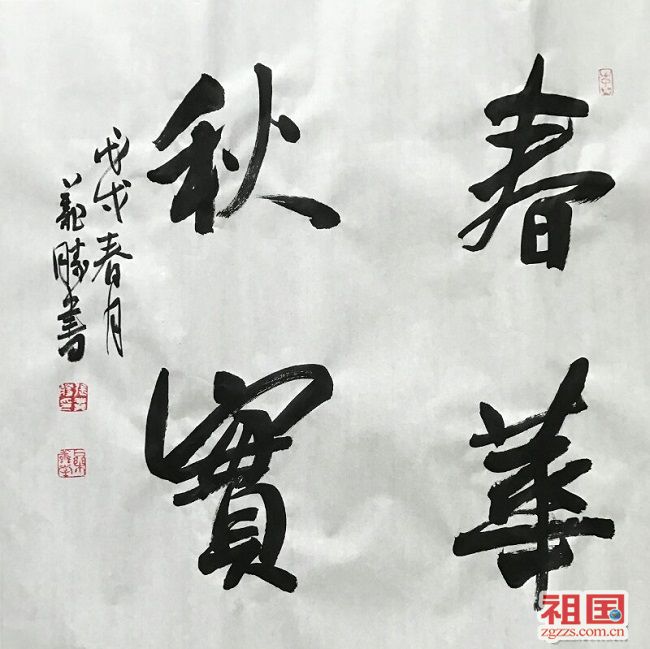 春華
秋實
戊戌春月
義勝書
祖国
zgzzs.com.cn